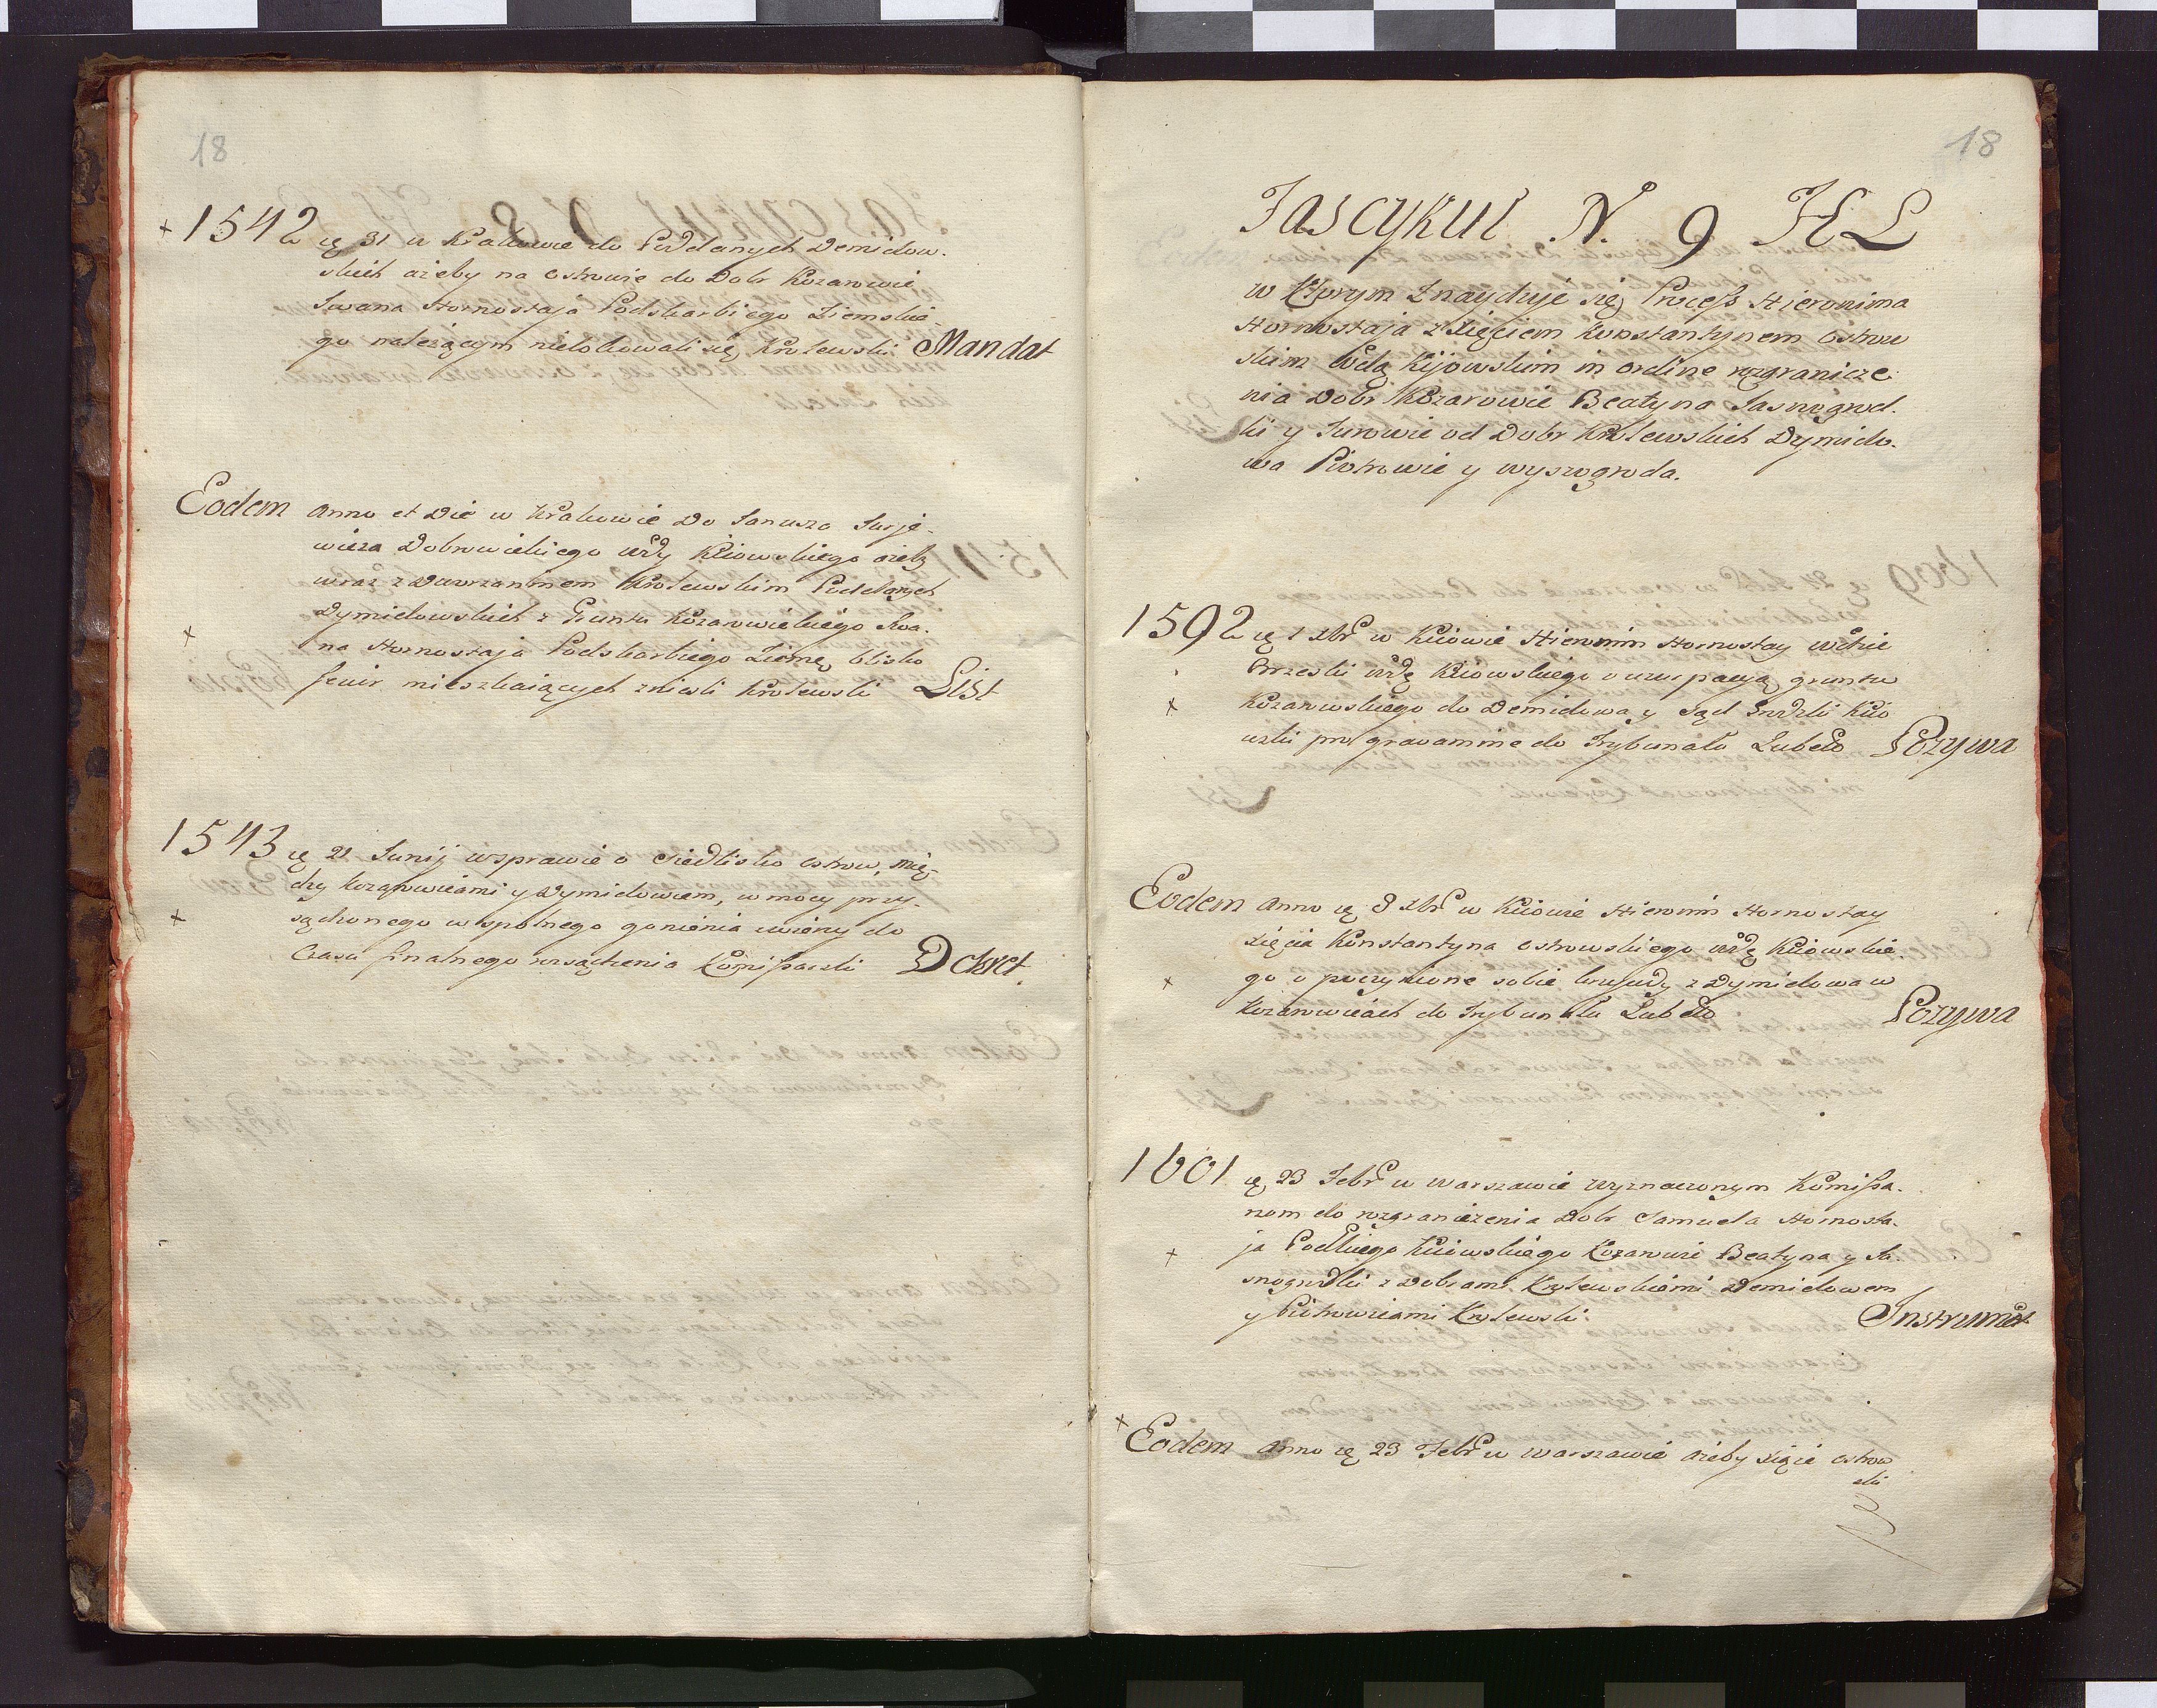 18
1542 ę 31 w Krakowie do Poddanych Demidow.
skich ażeby na ostrowie do Dobr Kozarowic
Iwana Hornostaja Podskarbiego Ziemskie
go należącym nielokowali się Krolewski Mandat
Eodem anno et Die w Krakowie Do Janusza Jurje.
wicza Dobrowickiego wdy Kiiowskiego ażeby
wraz z Dworzaninem Krolewskim Poddanych
Dymidowskich z Gruntu Kozarowickiego Iwa.
na Hornostaja Podskarbiego Ziemę blisko
mieszkaiących znieśli Krolewski List
1543 ę 21 Junij wsprawie o siedlisko ostrow, mię-
dzy Kozarowicami y Dymidowem, w mocy przy.
sądzonego wspolnego gonienia zwiery do
Czasu finalnego rozsądzenia Komissarski Dekret
18
Fascykul N. 9 H L
w Ktorym Znayduje się Process Hieronima
Hornostaja z Xięciem Konstantynem Ostrow
skim Wdą Kijowskim in ordine rozgranicze
nia Dobr Kozarowic Beatyna Jasnogrod.
ki y Jurowic od Dobr Krolewskich Dymido.
wa Piotrowic y wyszogroda.
1592 ę 1 xbr w Kiiowie Hieronim Hornostay
wdę Kiiowskiego o uzurpacyą gruntu
Kozarowskiego do Demidowa y Sąd Grdzki Kiio
wski pro gravamine do Trybunału Lubelo Pozywa
Eodem Anno ę 8 xbr w Kiiowie Hieronim Hornostay
xięcia Konstantyna ostrowskiego wdę Kiiowskie.
go o poczynione sobie krzywdy z Dymidowa w
Kozarowicach do Trybunału Lubelo Pozywa
1601 ę 23 Febr w Warszawie wyznaczonym Komissa.
rzom do rozgraniczenia Dobr Samuela Hornosta.
ja Podkiego Kiiowskiego Kozarowic Beatyna y Ja.
snogrodki z Dobrami Krolewskiemi Demidowem
y Piotrowicami Krolewski. Instrument
Eodem Anno ę 23 Febr w Warszawie ażeby xiąże ostrow
ski